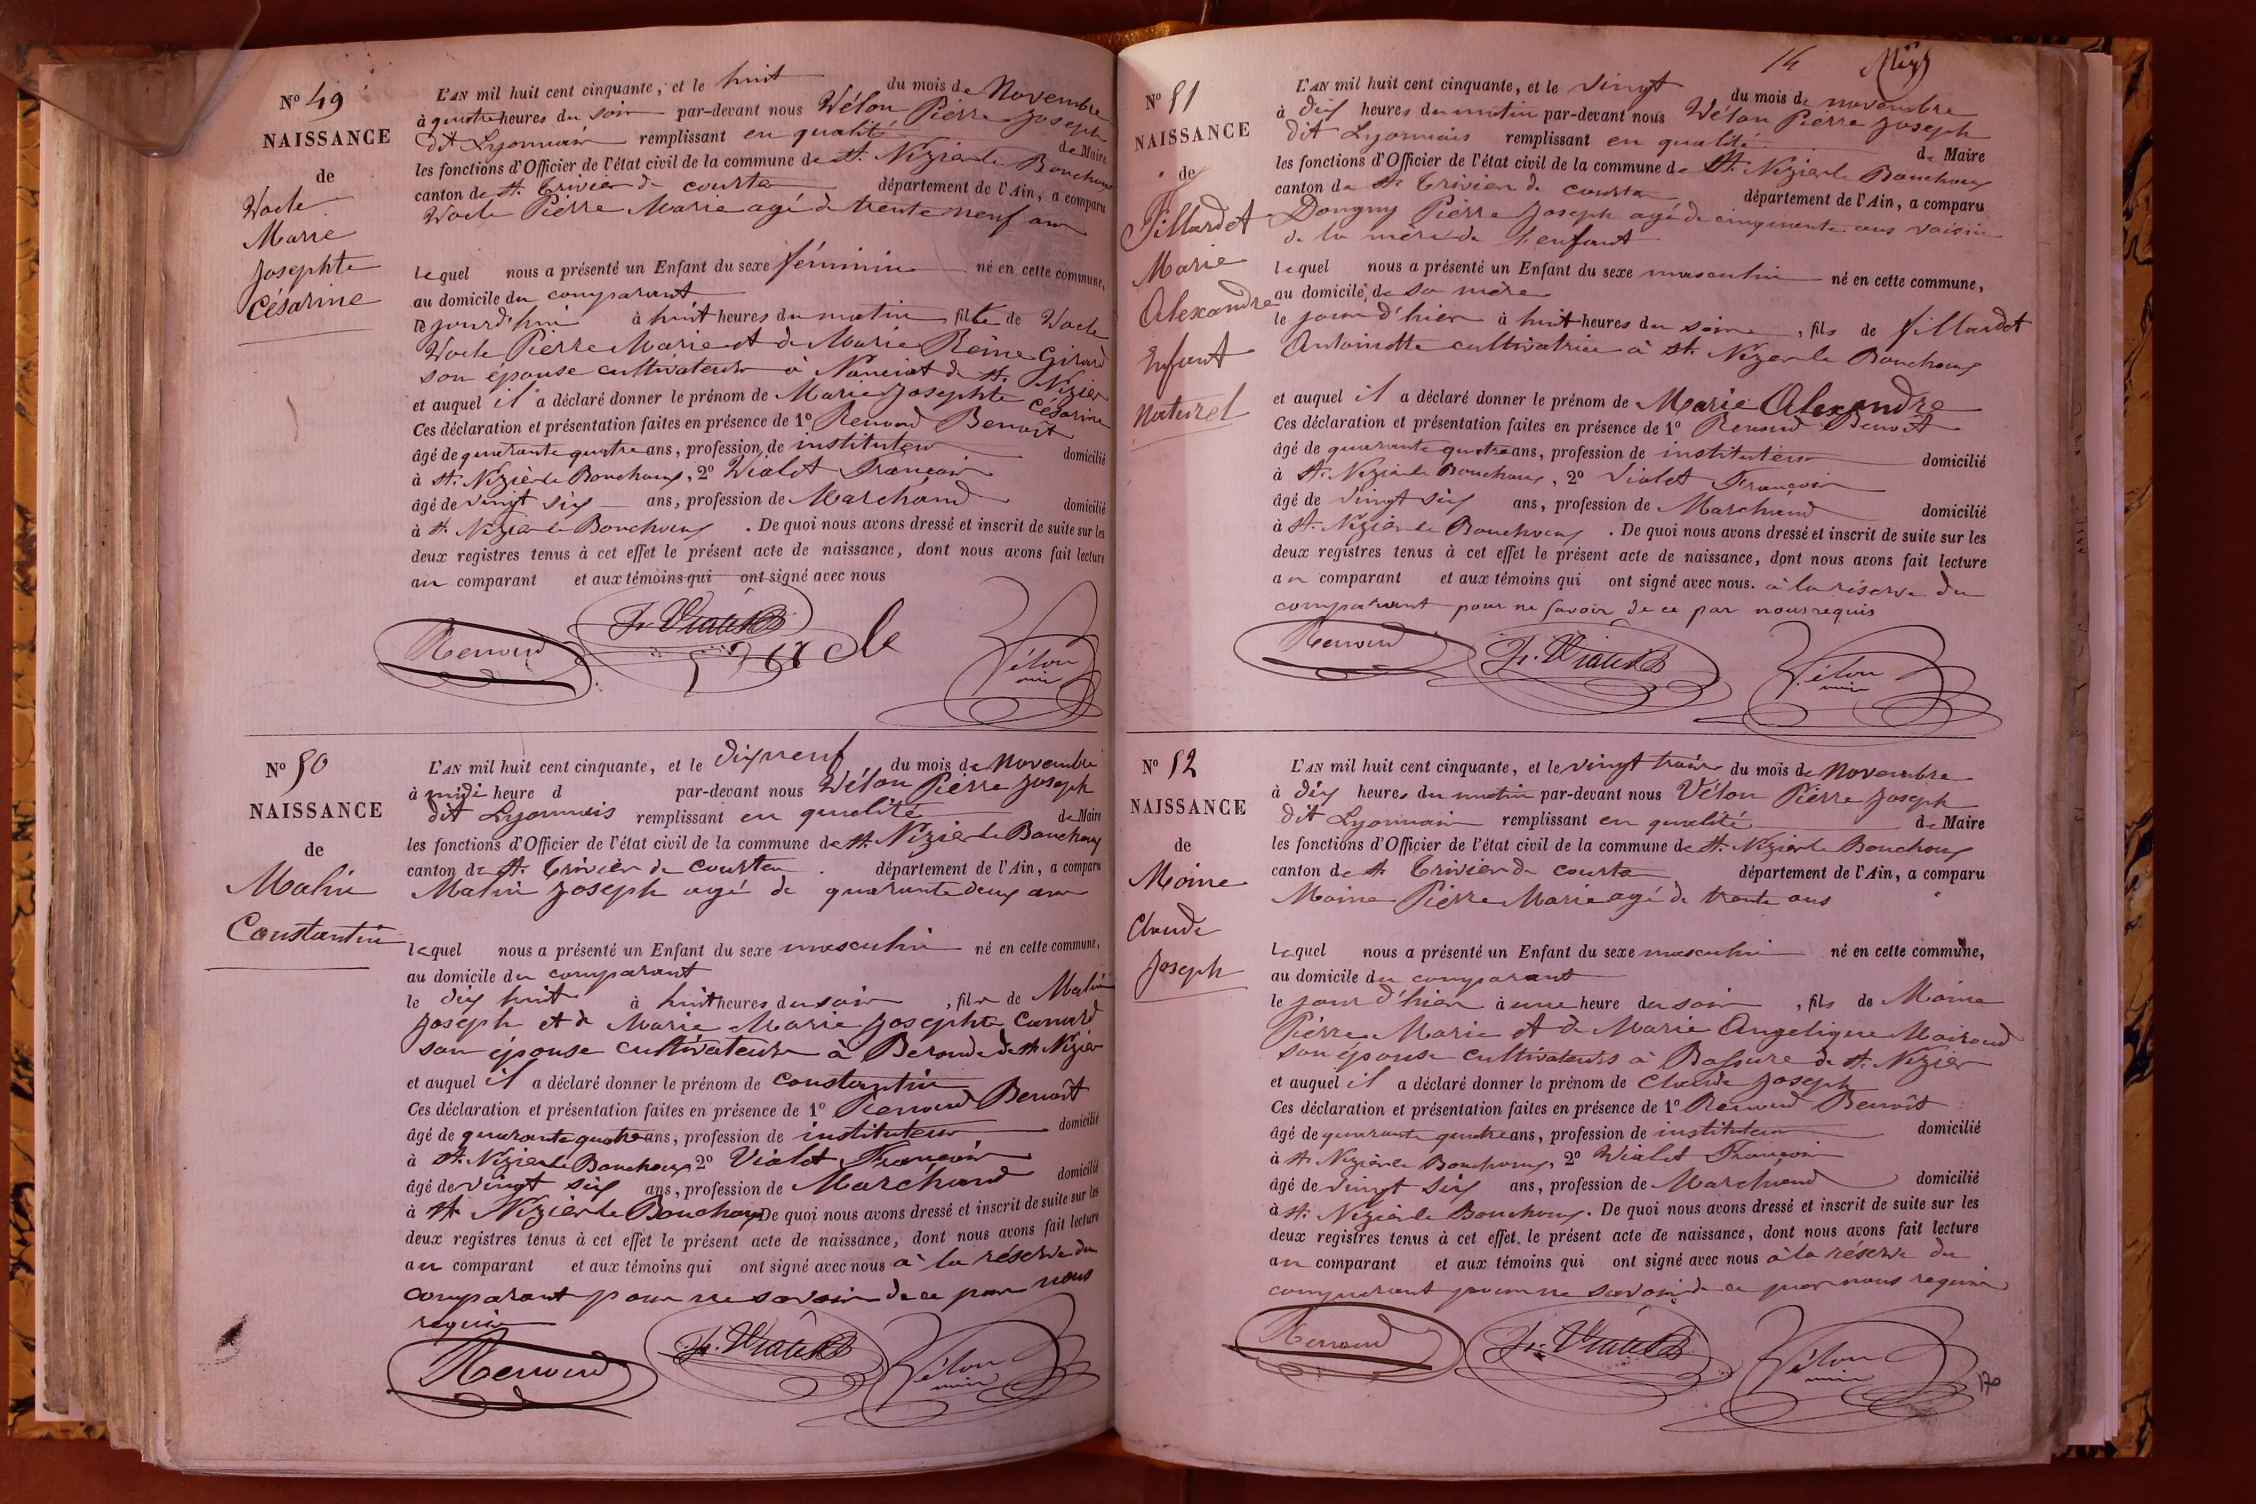 N° 49
NAISSANCE
de
Vacle
Marie
Josephte
Césarine
L'AN mil huit cent cinquante, et le huit du mois de Novembre
à quatre heures du soir par-devant nous Vélon Pierre Joseph
dit Lyonnais remplissant en qualité de Maire
les fonctions d'Officier de l'état civil de la commune de St. Nizier le Bouchoux
canton de St. Trivier de Courtes département de l'Ain, a comparu
Vacle Pierre Marie agé de trente neuf ans
lequel nous a présenté un Enfant du sexe féminin né en cette commune,
au domicile du comparant
le jourd'hui à huit heures du matin fille de Vacle
Vacle Pierre Marie et de Marie Reine Girard
son épouse cultivateurs à Nanciat de St. Nizier
et auquel il a déclaré donner le prénom de Marie Josephte Césarine
Ces déclaration et présentation faites en présence de 1° Renoud Benoît
âgé de quarante quatre ans, profession de instituteur domicilié
à St. Nizier le Bouchoux, 2° Vialet François
âgé de vingt six ans, profession de Marchand domicilié
à St. Nizier le Bouchoux. De quoi nous avons dressé et inscrit de suite sur les
deux registres tenus à cet effet le présent acte de naissance, dont nous avons fait lecture
au comparant et aux témoins qui ont signé avec nous
Renoud Fr. Vialet Vacle Vélon
maire
N° 50
NAISSANCE
de
Malin
Constantin
L'AN mil huit cent cinquante, et le dix neuf du mois de Novembre
à midi heure d par-devant nous Vélon Pierre Joseph
dit Lyonnais remplissant en qualité de Maire
les fonctions d'Officier de l'état civil de la commune de St. Nizier le Bouchoux
canton de St. Trivier de Courtes département de l'Ain, a comparu
Malin Joseph agé de quarante deux ans
lequel nous a présenté un Enfant du sexe masculin né en cette commune,
au domicile du comparant
le dix huit à huit heures du soir, fils de Malin
Joseph et de Marie Marie Josephte Canard
son épouse cultivateurs à Beronde de St. Nizier
et auquel il a déclaré donner le prénom de Constantin
Ces déclaration et présentation faites en présence de 1° Renoud Benoît
âgé de quarante quatre ans, profession de instituteur domicilié
à St. Nizier le Bouchoux 2° Vialet François
âgé de vingt six ans, profession de Marchand domicilié
à St. Nizier le Bouchoux De quoi nous avons dressé et inscrit de suite sur les
deux registres tenus à cet effet le présent acte de naissance, dont nous avons fait lecture
au comparant et aux témoins qui ont signé avec nous à la réserve du
comparant pour ne savoir de ce par nous
requis
Renoud Fr. Vialet Vélon
maire
14
N° 51
NAISSANCE
de
Fillardet
Marie
Alexandre
Enfant
naturel
L'AN mil huit cent cinquante, et le vingt du mois de novembre
à dix heures du matin par-devant nous Vélon Pierre Joseph
dit Lyonnais remplissant en qualité de Maire
les fonctions d'Officier de l'état civil de la commune de St. Nizier le Bouchoux
canton de St. Trivier de Courtes département de l'Ain, a comparu
Donguy Pierre Joseph agé de cinquante ans voisin
de la mère de l'enfant
lequel nous a présenté un Enfant du sexe masculin né en cette commune,
au domicile de sa mère
le jour d'hier à huit heures du soir, fils de fillardet
Antoinette cultivatrice à St. Nizier le Bouchoux
et auquel il a déclaré donner le prénom de Marie Alexandre
Ces déclaration et présentation faites en présence de 1° Renoud Benoît
âgé de quarante quatre ans, profession de instituteur domicilié
à St. Nizier le Bouchoux, 2° Vialet François
âgé de vingt six ans, profession de Marchand domicilié
à St. Nizier le Bouchoux. De quoi nous avons dressé et inscrit de suite sur les
deux registres tenus à cet effet le présent acte de naissance, dont nous avons fait lecture
au comparant et aux témoins qui ont signé avec nous. à la réserve du
comparant pour ne savoir de ce par nous requis
Renoud Fr. Vialet Vélon
maire
N° 52
NAISSANCE
de
Moine
Claude
Joseph
L'AN mil huit cent cinquante, et le vingt trois du mois de Novembre
à dix heures du matin par-devant nous Vélon Pierre Joseph
dit Lyonnais remplissant en qualité de Maire
les fonctions d'Officier de l'état civil de la commune de St. Nizier le Bouchoux
canton de St Trivier de Courtes département de l'Ain, a comparu
Moine Pierre Marie agé de trente ans
lequel nous a présenté un Enfant du sexe masculin né en cette commune,
au domicile du comparant
le jour d'hier à une heure du soir, fils de Moine
Pierre Marie et de Marie Angelique Moiroud
son épouse cultivateurs à Bassure de St. Nizier
et auquel il a déclaré donner le prénom de Claude Joseph
Ces déclaration et présentation faites en présence de 1° Renoud Benoît
âgé de quarante quatre ans, profession de instituteur domicilié
à St Nizier le Bouchoux, 2° Vialet François
âgé de vingt six ans, profession de Marchand domicilié
à St. Nizier le Bouchoux. De quoi nous avons dressé et inscrit de suite sur les
deux registres tenus à cet effet, le présent acte de naissance, dont nous avons fait lecture
au comparant et aux témoins qui ont signé avec nous à la réserve du
comparant pour ne savoir de ce par nous requis
Renoud Fr. Vialet Vélon
maire